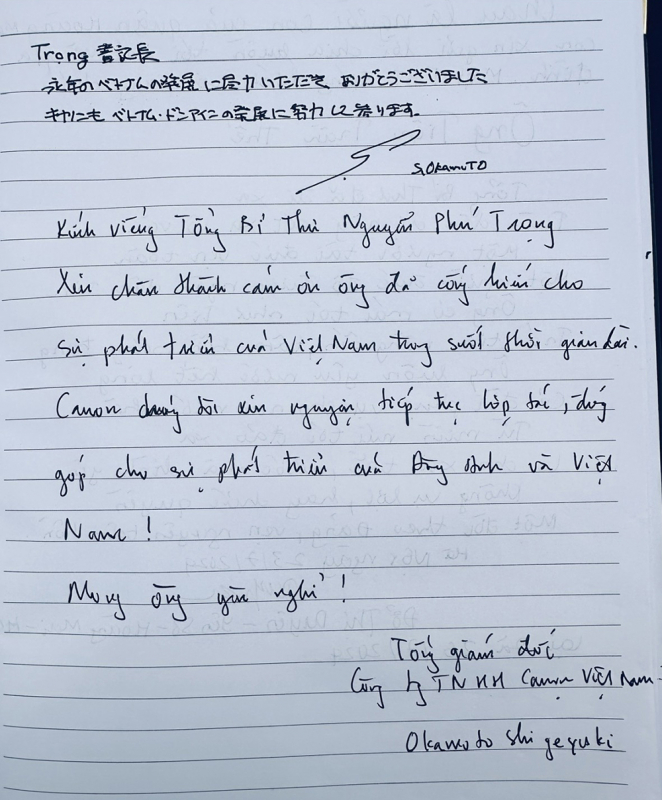 Trọng 書記長
永年のベトナムの発展に尽力いただき ありがとうございました
キヤノンも ベトナム・ドンアインの発展に努力して参ります。
S.OkamuTO
Kính viếng Tổng Bí Thư Nguyễn Phú Trọng
Xin chân thành cảm ơn ông đã cống hiến cho
sự phát triển của Việt Nam trong suốt thời gian dài.
Canon chúng tôi xin nguyện tiếp tục hợp tác, đóng
góp cho sự phát triển của Đông Anh và Việt
Nam !
Mong ông yên nghỉ !
Tổng giám đốc
Công ty TNHH Canon Việt Nam
Okamoto Shigeyuki